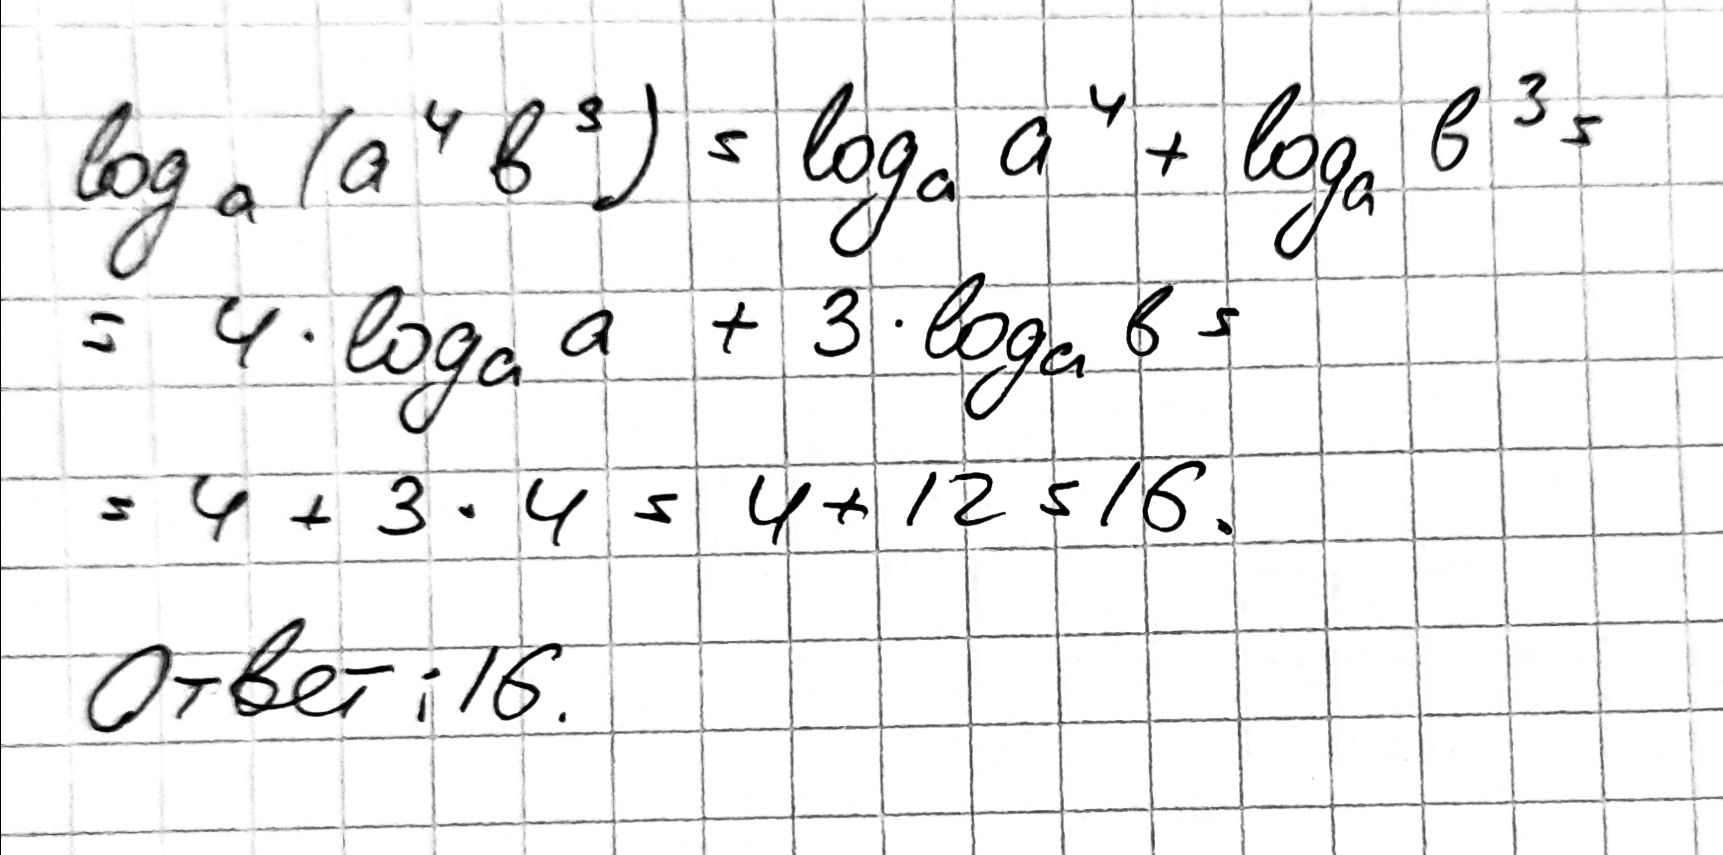 logₐ (a⁴ b³) = logₐ a⁴ + logₐ b³ =
= 4 · logₐ a + 3 · logₐ b =
= 4 + 3 · 4 = 4 + 12 = 16.
Ответ: 16.